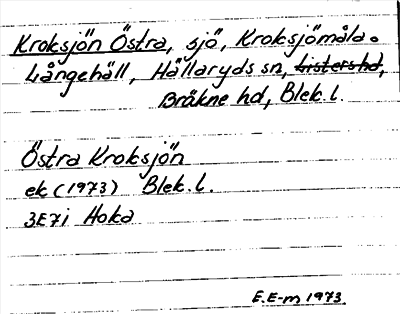 Kroksjön Östra, sjö, Kroksjömåla o
Långehäll, Hällaryds sn, Listers hd,
Bräkne hd, Blek. l.
Östra Kroksjön
ek (1973) Blek. l.
3E7i Hoka
E.E-m 1973